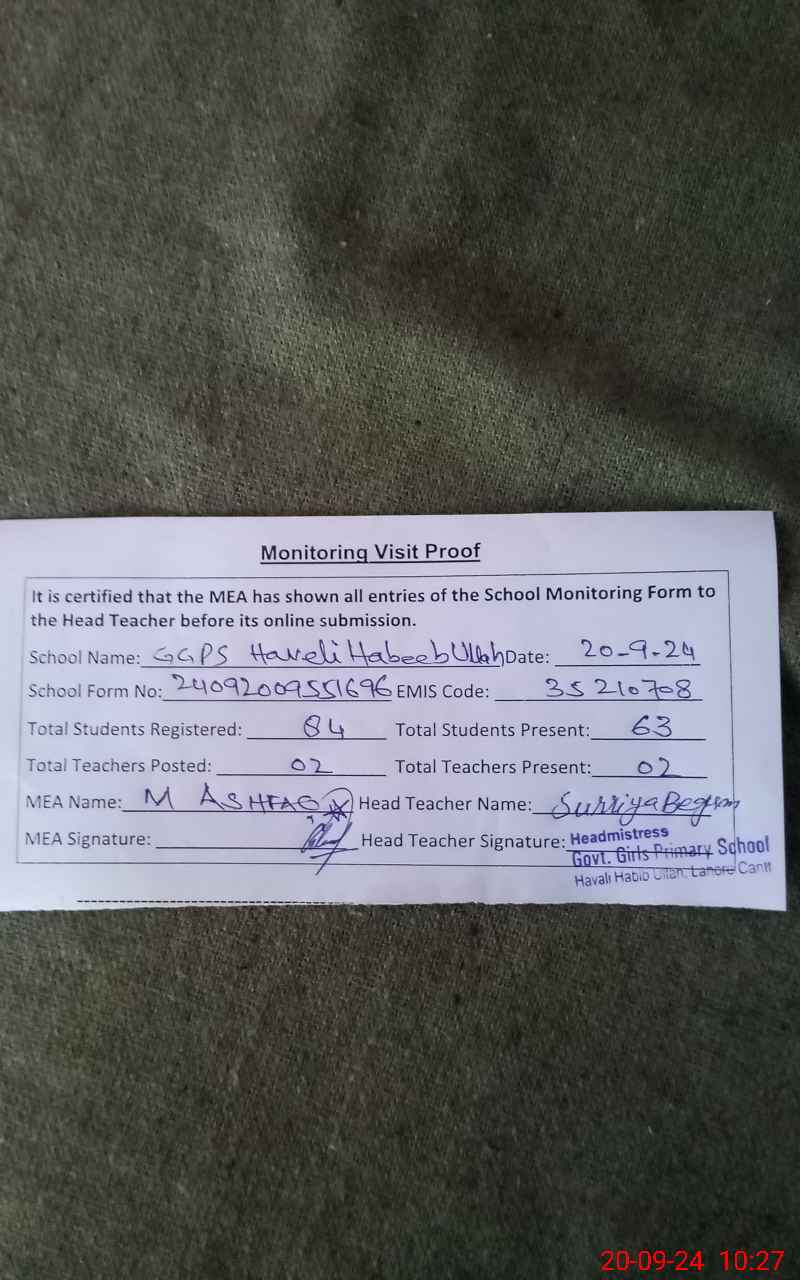 Monitoring Visit Proof
It is certified that the MEA has shown all entries of the School Monitoring Form to
the Head Teacher before its online submission.
School Name: GGPS Haveli Habeeb Ullah Date: 20-9-24
School Form No: 24092009551696 EMIS Code: 35210708
Total Students Registered: 84 Total Students Present: 63
Total Teachers Posted: 02 Total Teachers Present: 02
MEA Name: M ASHFAQ Head Teacher Name: Surriya Begum
MEA Signature: Head Teacher Signature: Headmistress
Govt. Girls Primary School
Havali Habib Ullah, Lahore Cantt
20-09-24 10:27